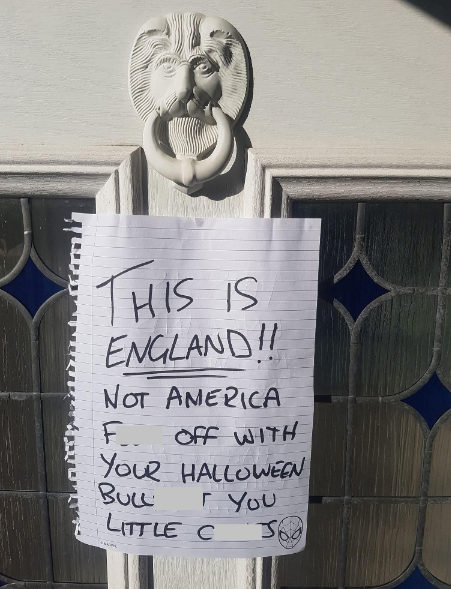 THIS IS
ENGLAND!!
NOT AMERICA
F OFF WITH
YOUR HALLOWEEN
BULL T YOU
LITTLE C S